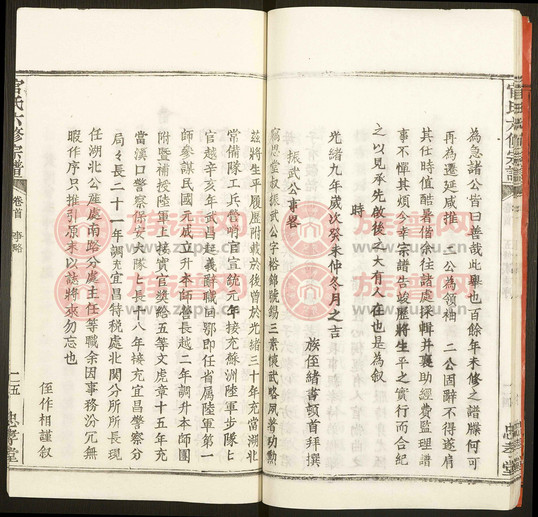 為急諸公皆曰善哉此舉也百餘年未修之譜牒何可
再為遷延咸推 二公為領袖 二公固辭不得遂肩
其任時值酷暑偕余往諸處採輯并襄助經費監理譜
事不憚其煩今幸宗譜告竣歷將生平之實行而合紀
之以見承先啟後之大有人在也是為叙
時
光緒九年歲次癸未仲冬月之吉
族侄緒書頓首拜撰
振武公事畧
竊思堂叔振武公字裕錦號錫三素懷武略夙著功勲
茲將生平履歷附載於後曾於光緒三十年充當湖北
常備隊工兵營哨官宣統元年接充蘇洲陸軍步隊七
官越辛亥年武昌起義辭職回鄂即任省属陸軍第一
師參謀民國元成立升本師督長越二年調升本師團
附暨補授陸軍上校實官奬給五等文虎章十五年充
當漢口警察保安大隊大長十八年接充宜昌警察分
局々長二十一年調充宜昌特税處北關分所所長現
任湖北公産處南路分處主任等職余因事務汾冗無
暇作序只推引原末以誌將來勿忘也
侄作相謹叙
官氏六修宗譜
卷首
事略
二五
忠孝堂
官氏六修宗譜
忠孝堂
族谱网
族谱网
族谱网
族谱网